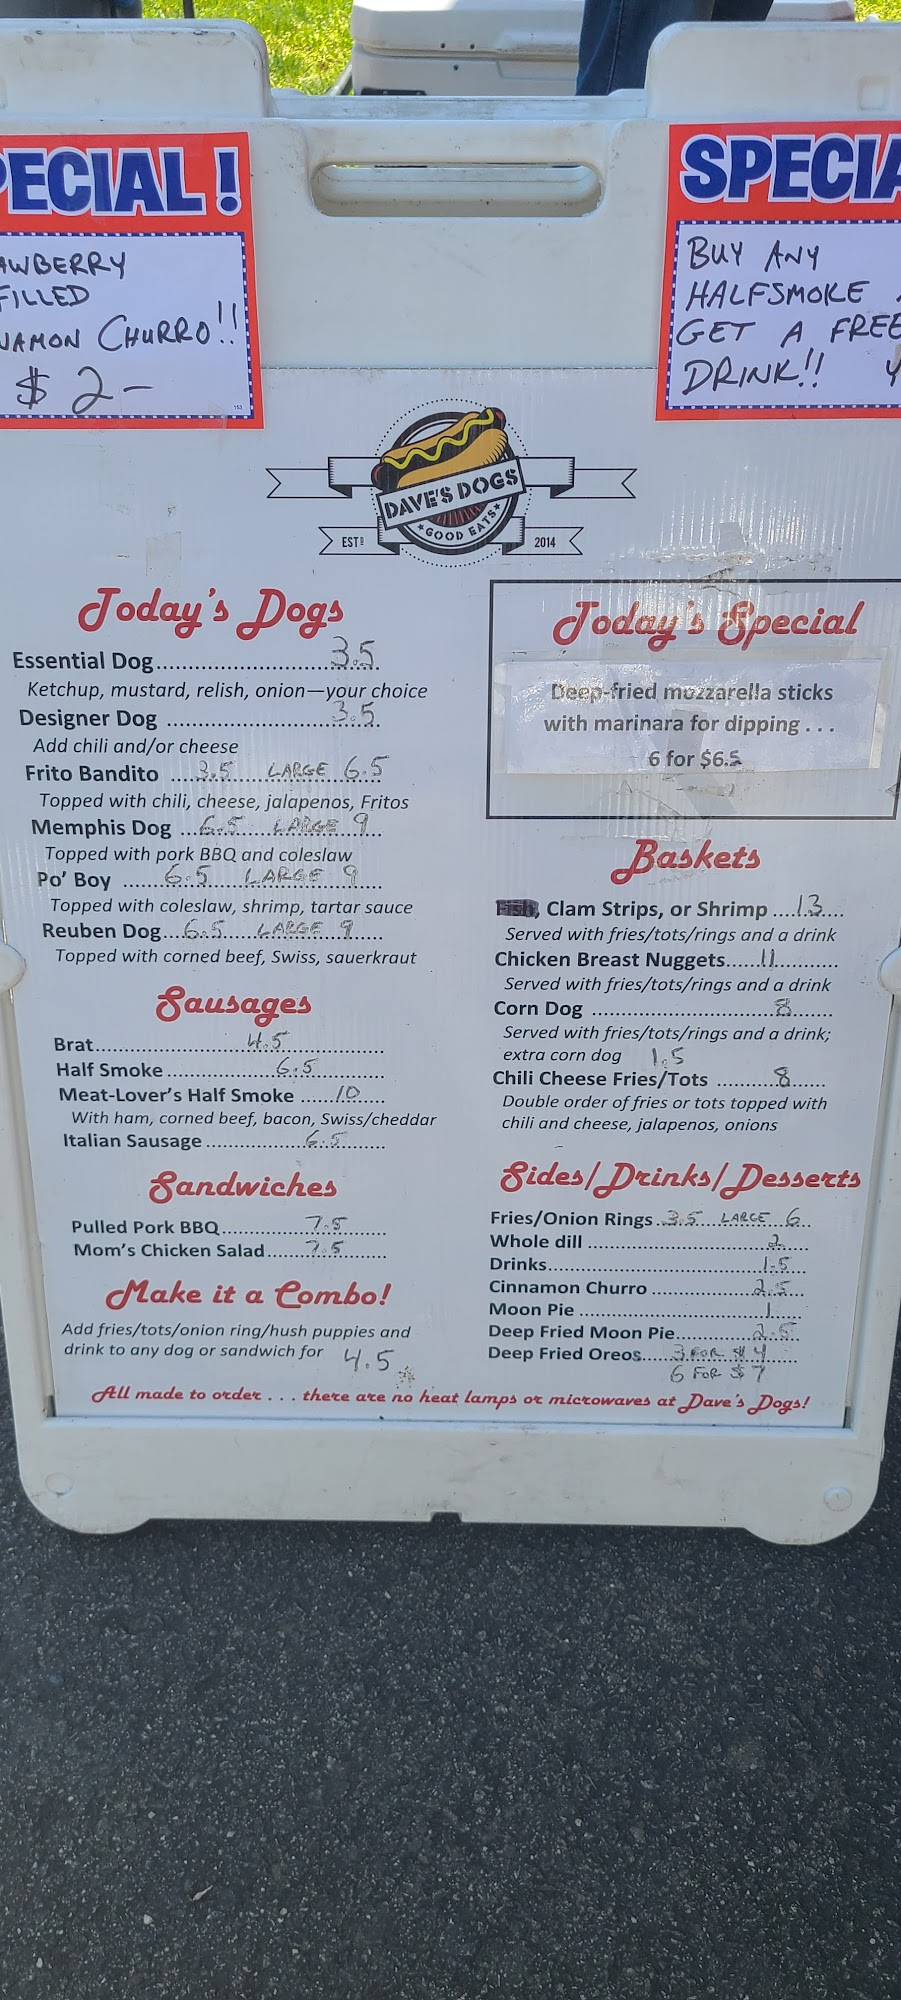 PECIAL!
AWBERRY
FILLED
NAMON CHURRO!!
$2-
SPECIA
BUY ANY
HALFSMOKE
GET A FREE
DRINK!!
DAVE'S DOGS
GOOD EATS
ESTD 2014
Today's Dogs
Essential Dog 3.5
Ketchup, mustard, relish, onion—your choice
Designer Dog 3.5
Add chili and/or cheese
Frito Bandito 3.5 LARGE 6.5
Topped with chili, cheese, jalapenos, Fritos
Memphis Dog 6.5 LARGE 9
Topped with pork BBQ and coleslaw
Po' Boy 6.5 LARGE 9
Topped with coleslaw, shrimp, tartar sauce
Reuben Dog 6.5 LARGE 9
Topped with corned beef, Swiss, sauerkraut
Sausages
Brat 4.5
Half Smoke 6.5
Meat-Lover's Half Smoke 10
With ham, corned beef, bacon, Swiss/cheddar
Italian Sausage 6.5
Sandwiches
Pulled Pork BBQ 7.5
Mom's Chicken Salad 7.5
Make it a Combo!
Add fries/tots/onion ring/hush puppies and
drink to any dog or sandwich for 4.5
Today's Special
Deep-fried mozzarella sticks
with marinara for dipping . . .
6 for $6.5
Baskets
Fish, Clam Strips, or Shrimp 13
Served with fries/tots/rings and a drink
Chicken Breast Nuggets 11
Served with fries/tots/rings and a drink
Corn Dog 8
Served with fries/tots/rings and a drink;
extra corn dog 1.5
Chili Cheese Fries/Tots 8
Double order of fries or tots topped with
chili and cheese, jalapenos, onions
Sides/Drinks/Desserts
Fries/Onion Rings 3.5 LARGE 6
Whole dill 2
Drinks 1.5
Cinnamon Churro 2.5
Moon Pie 1
Deep Fried Moon Pie 2.5
Deep Fried Oreos 3 FOR $4
6 FOR $7
All made to order . . . there are no heat lamps or microwaves at Dave's Dogs!